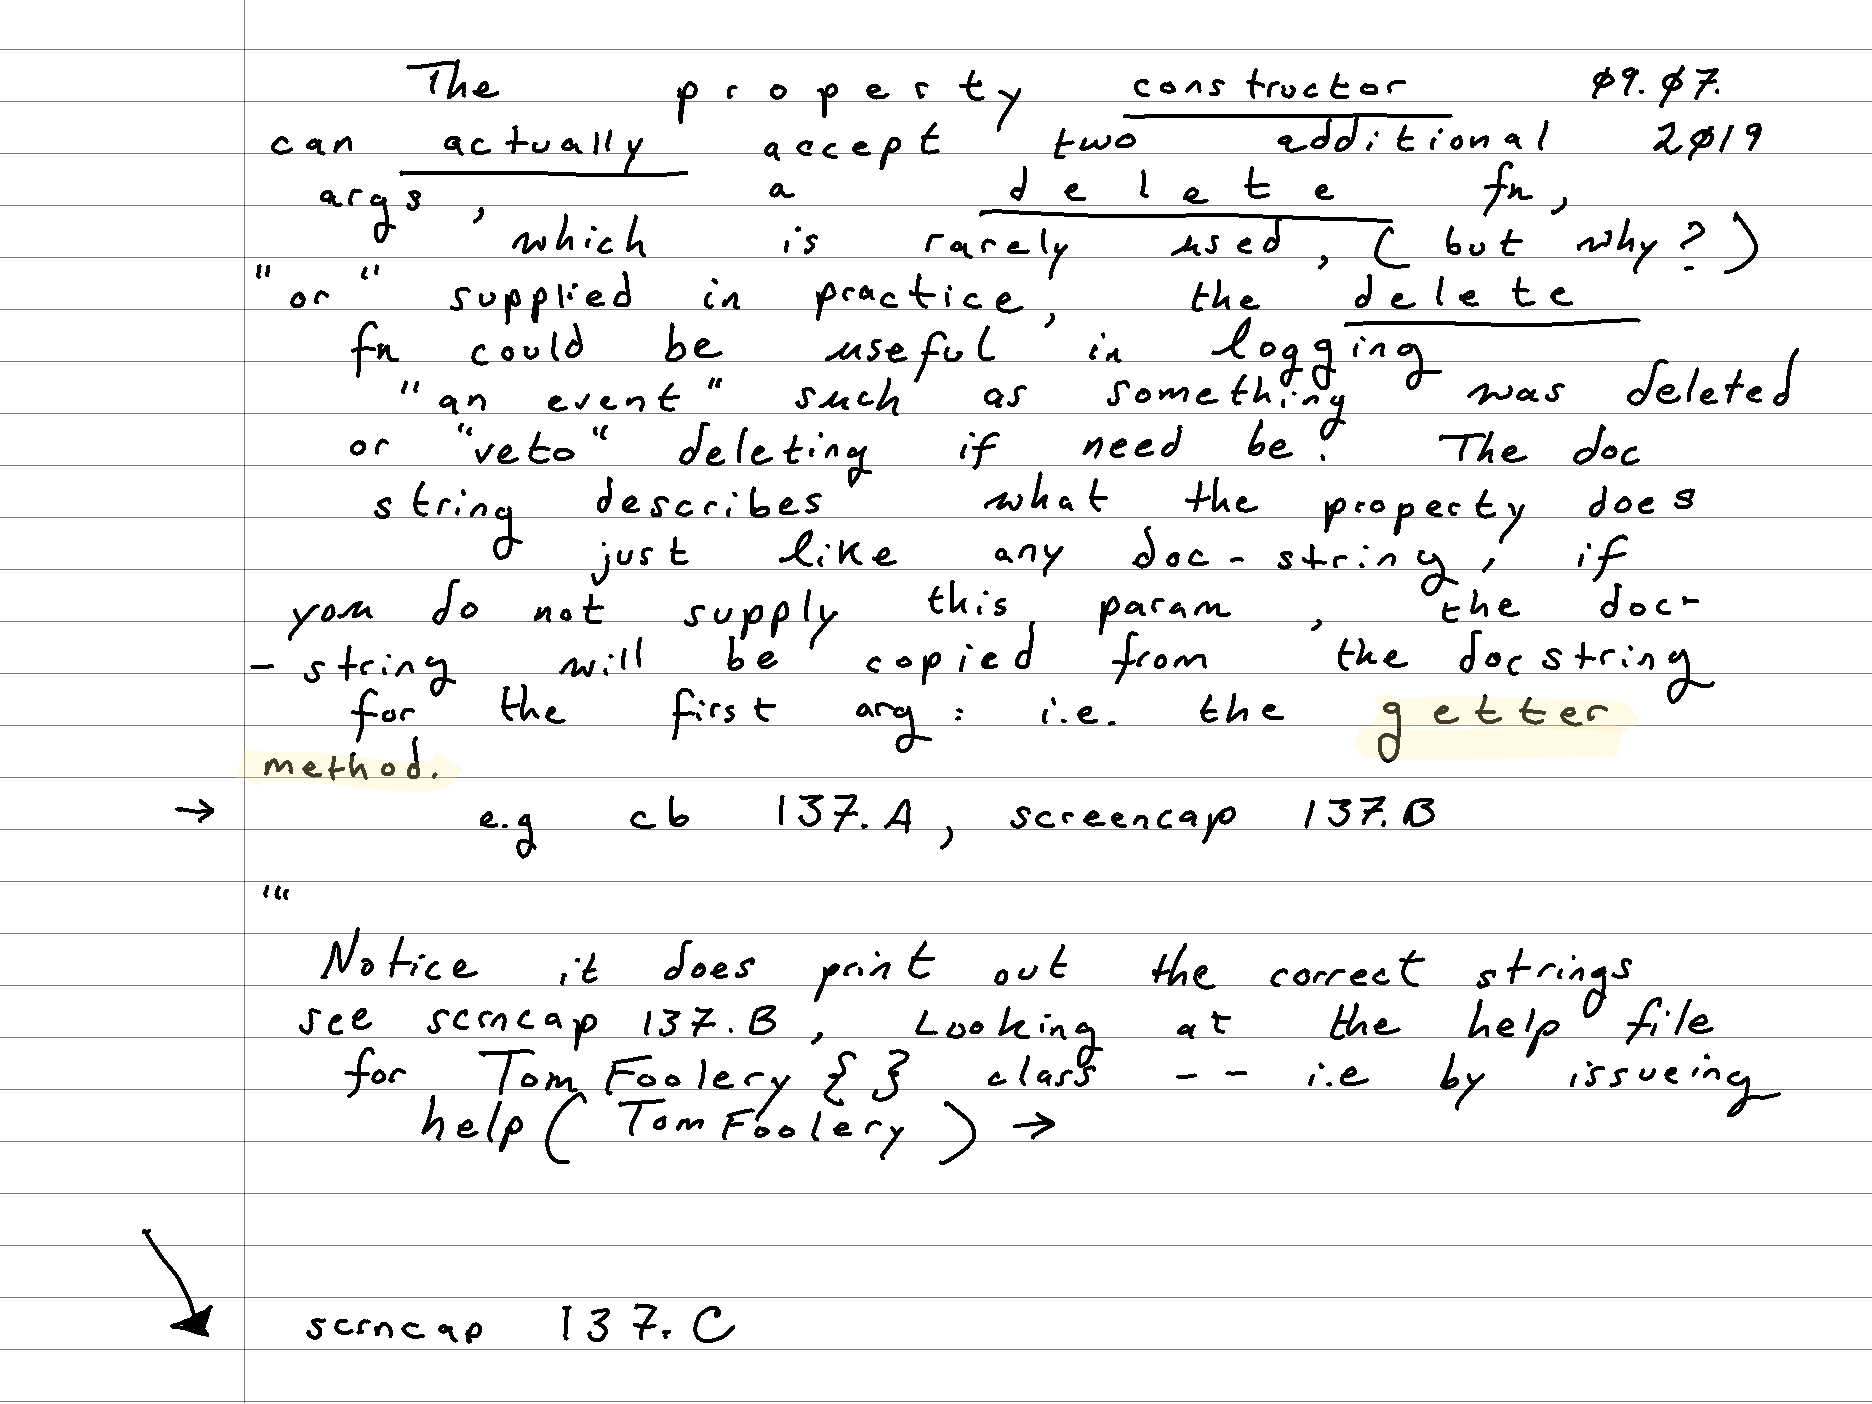 The property constructor ø9.ø7.
can actually accept two additional 2ø19
args, a delete fn,
which is rarely used, (but why?)
"or" supplied in practice, the delete
fn could be useful in logging
"an event" such as something was deleted
or "veto" deleting if need be. The doc
string describes what the property does
just like any doc-string, if
you do not supply this param, the doc-
-string will be copied from the docstring
for the first arg: i.e. the getter
method.
→ e.g cb 137.A, screencap 137.B
"'
Notice it does print out the correct strings
see scrncap 137.B, Looking at the help file
for TomFoolery {} class -- i.e by issueing
help(TomFoolery) →
scrncap 137.C